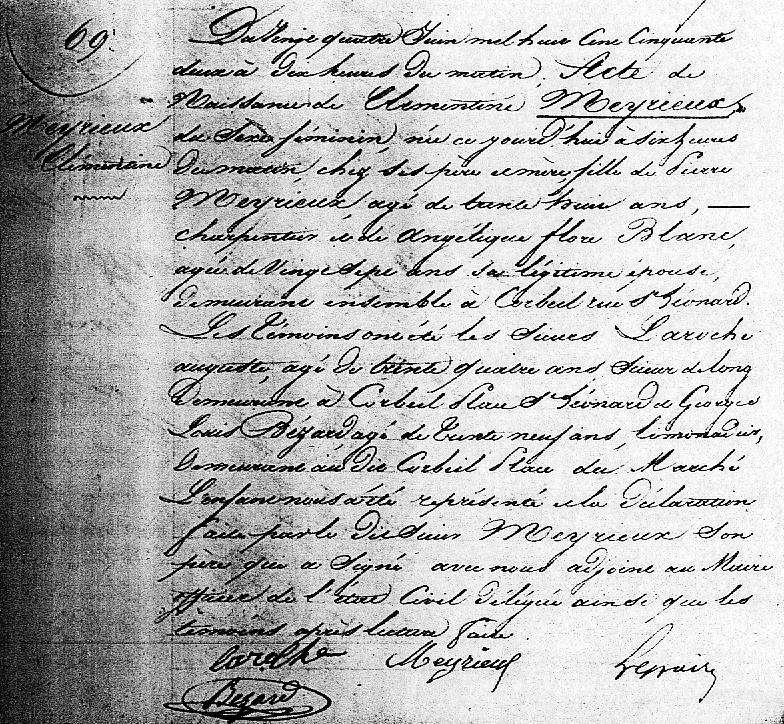 69.
Meyrieux
Clémentine
Du Vingt quatre Juin mil huit Cent Cinquante
deux à dix heures du matin, Acte de
Naissance de Clémentine Meyrieux,
du Sexe féminin, née ce jourd'hui à six heures
du matin chez ses père et mère fille de Pierre
Meyrieux, agé de trente huit ans,
charpentier et de Angélique flore Blanc,
agée de Vingt sept ans sa légitime épouse,
demeurant ensemble à Corbeil rue St Léonard.
Les témoins ont été les sieurs Laroche
auguste, agé de trente quatre ans scieur de long
demeurant à Corbeil Place St Léonard et George
Louis Bézard agé de trente neuf ans, limonadier,
demeurant au dit Corbeil Place du Marché
L'enfant nous a été représenté et la déclaration
faite par le dit sieur Meyrieux son
père que a signé avec nous adjoint au Maire
officier de l'état Civil délégué ainsi que les
témoins après lecture faite
Laroche Meyrieux
Bezard